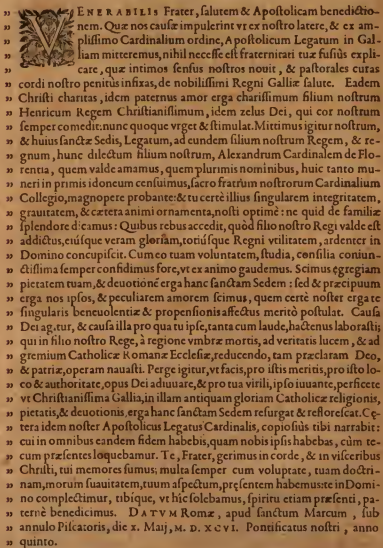 „ VENERABILIS Frater, salutem & Apostolicam benedictio-
„ nem. Quæ nos causæ impulerint vt ex nostro latere, & ex am-
„ plissimo Cardinalium ordine, Apostolicum Legatum in Gal-
„ liam mitteremus, nihil necesse est fraternitati tuæ fusiùs expli-
„ care, quæ intimos sensus nostros nouit, & pastorales curas
„ cordi nostro penitùs infixas, de nobilissimi Regni Galliæ salute. Eadem
„ Christi charitas, idem paternus amor erga charissimum filium nostrum
„ Henricum Regem Christianissimum, idem zelus Dei, qui cor nostrum
„ semper comedit: nunc quoque vrget & stimulat. Mittimus igitur nostrum,
„ & huius sanctæ Sedis, Legatum, ad eundem filium nostrum Regem, & re-
„ gnum, hunc dilectum filium nostrum, Alexandrum Cardinalem de Flo-
„ rentia, quem valde amamus, quem plurimis nominibus, huic tanto mu-
„ neri in primis idoneum censuimus, sacro fratrum nostrorum Cardinalium
„ Collegio, magnopere probante: & tu certè illius singularem integritatem,
„ grauitatem, & cætera animi ornamenta, nosti optimè: ne quid de familiæ
„ splendore dicamus: Quibus rebus accedit, quòd filio nostro Regi valde est
„ addictus, eiúsque veram gloriam, totiúsque Regni vtilitatem, ardenter in
„ Domino concupiscit. Cum eo tuam voluntatem, studia, consilia coniun-
„ ctissima semper confidimus fore, vt ex animo gaudemus. Scimus egregiam
„ pietatem tuam, & deuotionē erga hanc sanctam Sedem: sed & præcipuum
„ erga nos ipsos, & peculiarem amorem scimus, quem certè noster erga te
„ singularis beneuolentiæ & propensionis affectus meritò postulat. Causa
„ Dei agitur, & causa illa pro qua tu ipse, tanta cum laude, hactenus laborasti,
„ qui in filio nostro Rege, à regione vmbræ mortis, ad veritatis lucem, & ad
„ gremium Catholicæ Romanæ Ecclesiæ, reducendo, tam præclaram Deo,
„ & patriæ, operam nauasti. Perge igitur, vt facis, pro istis meritis, pro isto lo-
„ co & authoritate, opus Dei adiuuare, & pro tua virili, ipso iuuante, perficere
„ vt Christianissima Gallia, in illam antiquam gloriam Catholicæ religionis,
„ pietatis, & deuotionis, erga hanc sanctam Sedem resurgat & reflorescat. Cę-
„ tera idem noster Apostolicus Legatus Cardinalis, copiosiùs tibi narrabit:
„ cui in omnibus eandem fidem habebis, quam nobis ipsis habebas, cùm te-
„ cum præsentes loquebamur. Te, Frater, gerimus in corde, & in visceribus
„ Christi, tui memores sumus; multa semper cum voluptate, tuam doctri-
„ nam, morum suauitatem, tuum aspectum, pręsentem habemus: te in Domi-
„ no complectimur, tibique, vt hîc solebamus, spiritu etiam præsenti, pa-
„ ternè benedicimus. DATVM Romæ, apud sanctum Marcum, sub
„ annulo Piscatoris, die x. Maij, M. D. XCVI. Pontificatus nostri, anno
„ quinto.